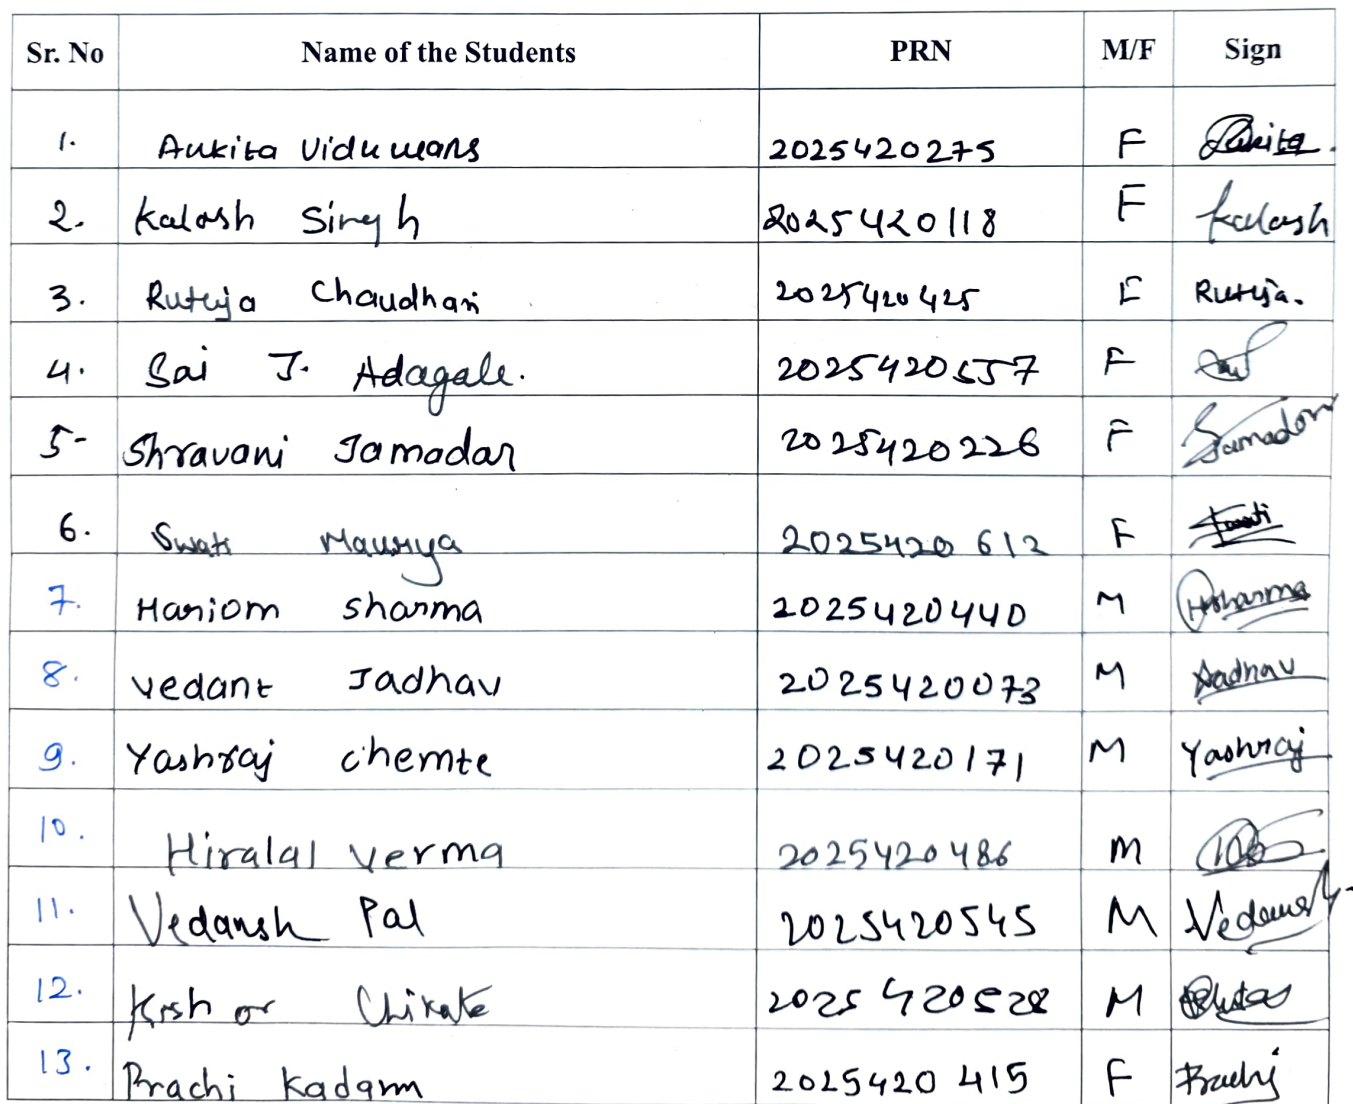 Sr. No Name of the Students PRN M/F Sign
1. Ankita Viduwans 2025420275 F Ankita.
2. Kalash Singh 2025420118 F Kalash
3. Rutuja Chaudhari 2025420425 F Rutuja.
4. Sai J. Adagale. 2025420557 F
5- Shravani Jamadar 2025420226 F Jamadar
6. Swati Maurya 2025420612 F Swati
7. Hariom Sharma 2025420440 M HSharma
8. Vedant Jadhav 2025420073 M Jadhav
9. Yashraj Chemte 2025420171 M Yashraj
10. Hiralal Verma 2025420486 M
11. Vedansh Pal 2025420545 M Vedansh
12. Kishor 2025420528 M
13. Prachi Kadam 2025420415 F Prachi